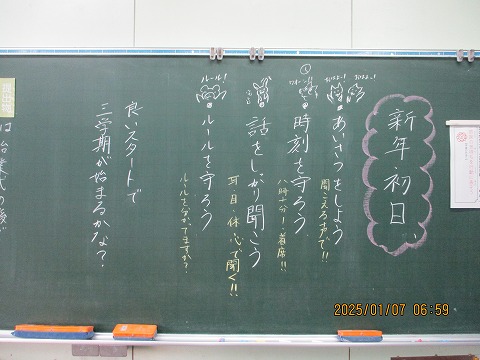 新年初日
おはよー!
おはよー!
あいさつをしよう
聞こえる声で!!
時刻を守ろう
八時十分!着席!!
話をしっかり聞こう
耳・目・体・心で聞く!!
ルール!
ルールを守ろう
良いスタートで
三学期が始まるかな?
提出物
は始業式の後で
2025/01/07 06:59